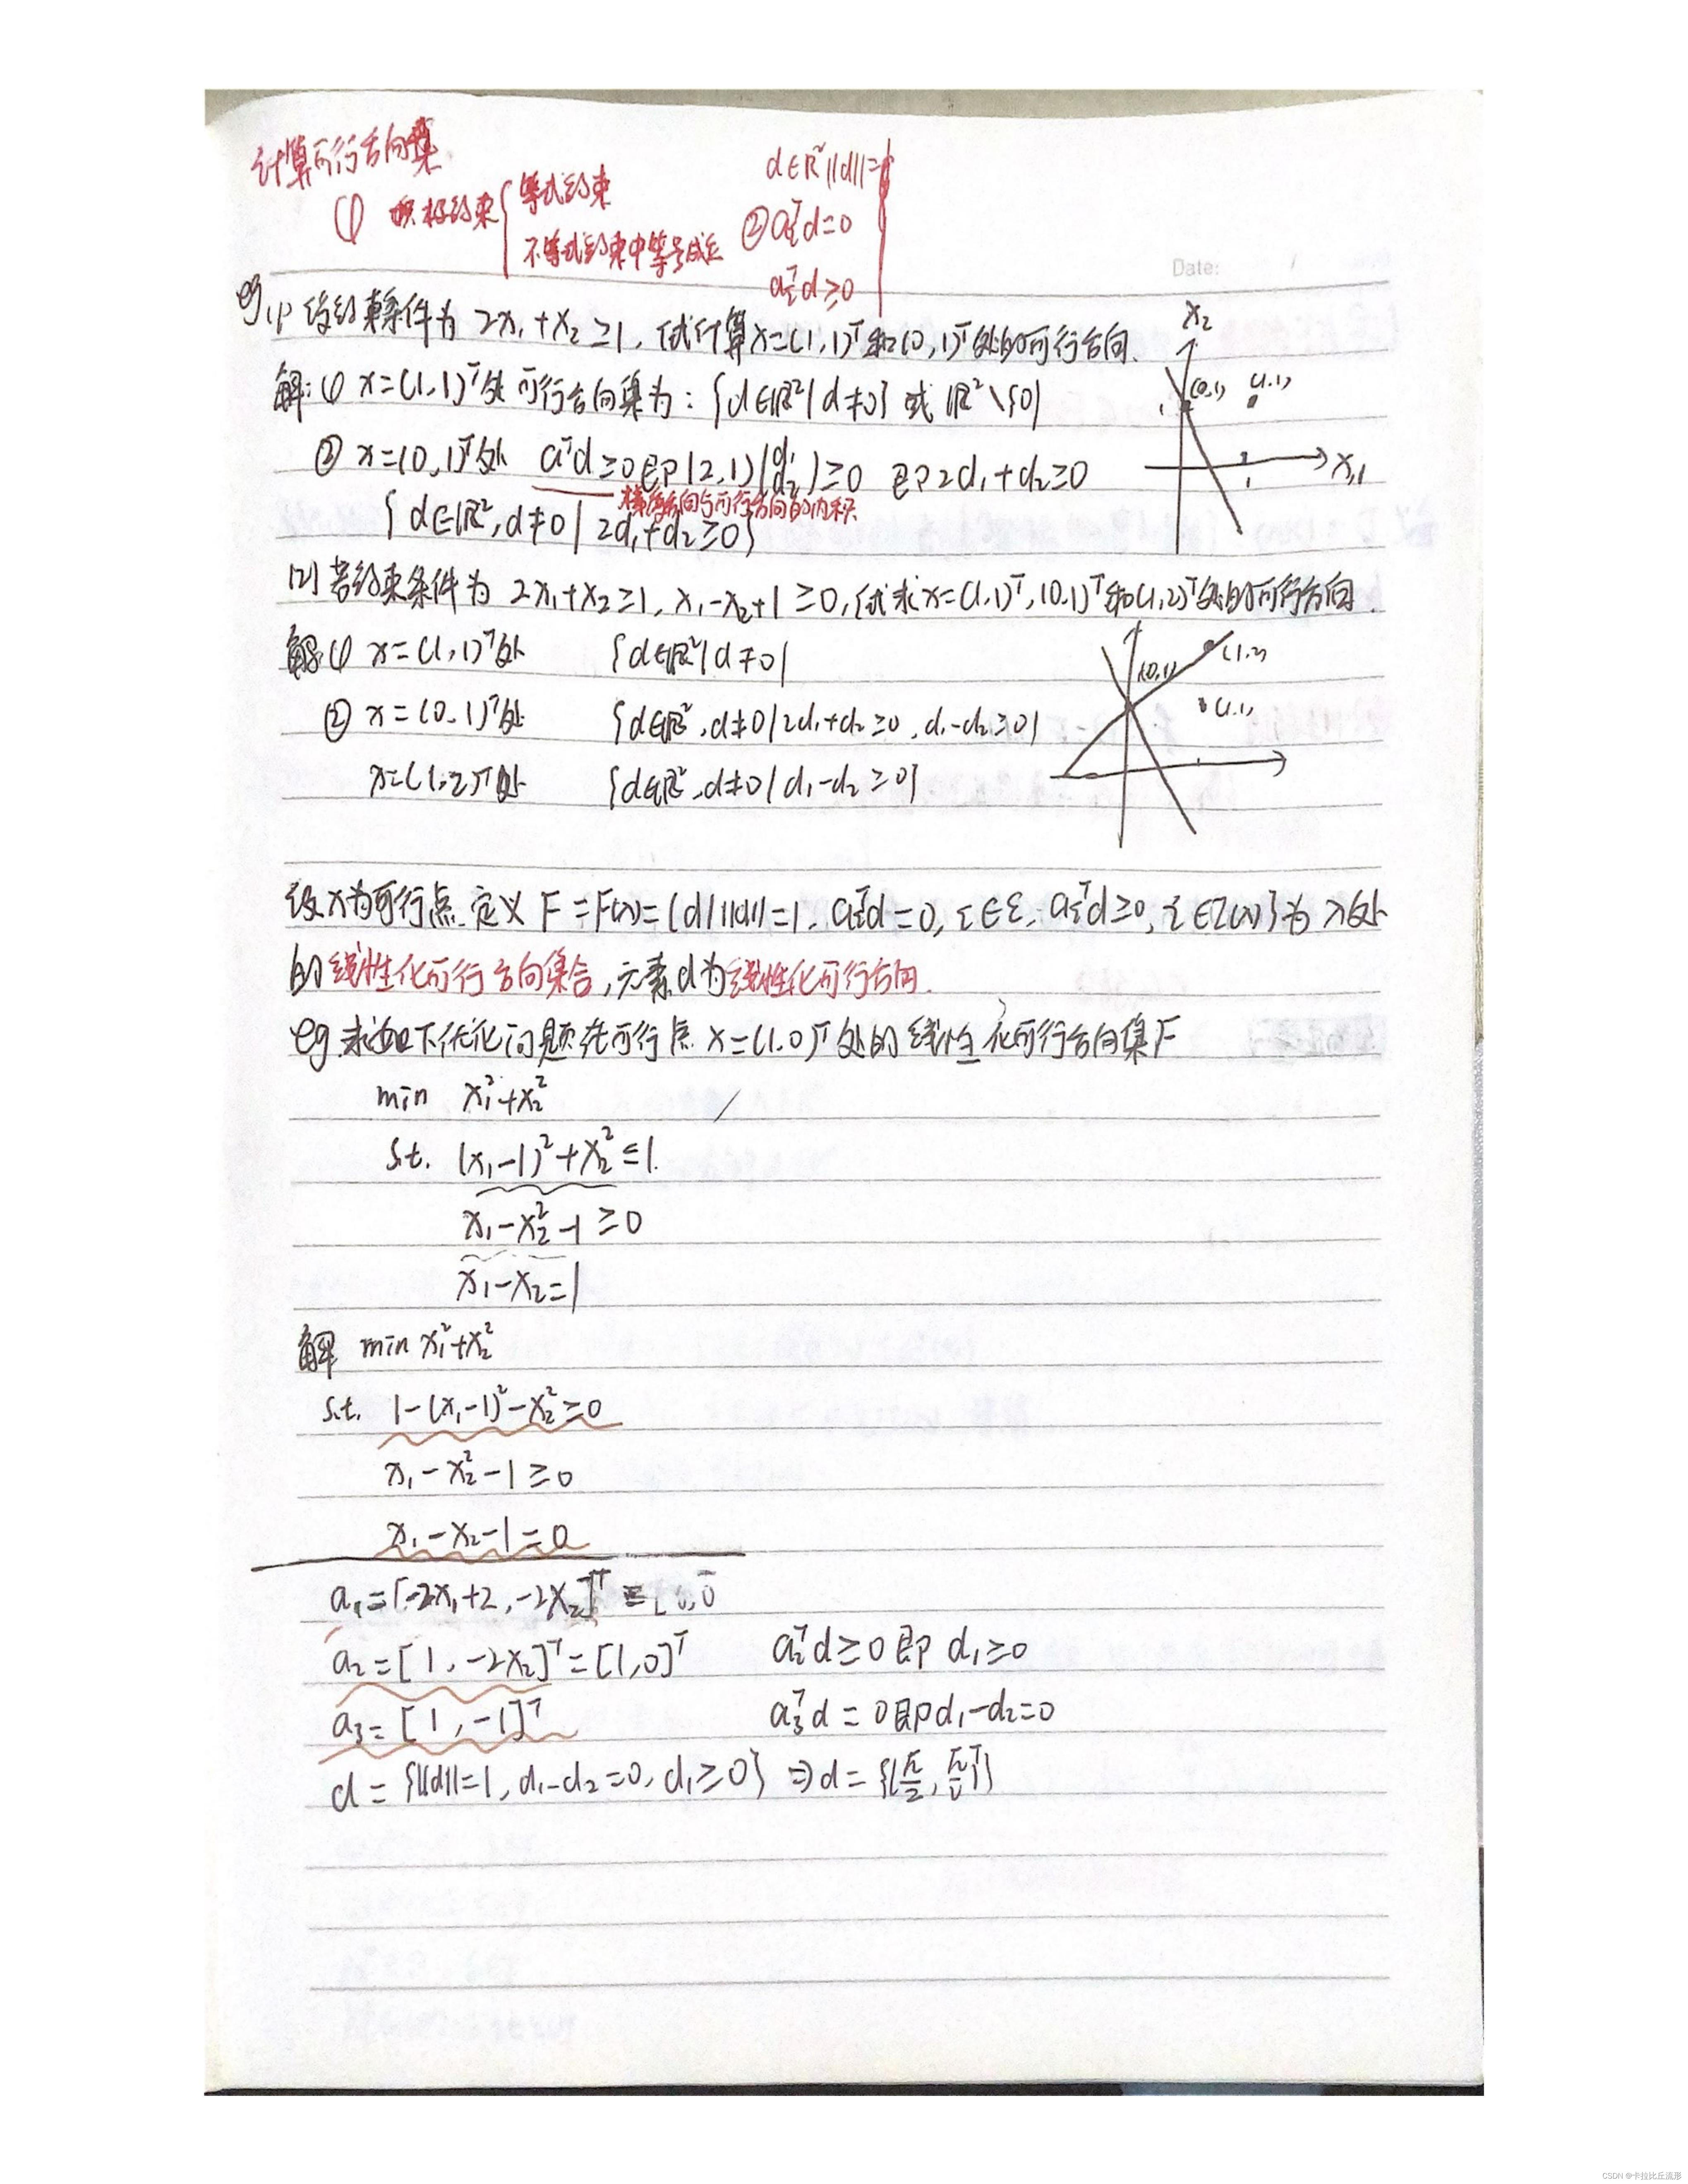 计算可行方向集
① 积极约束 { 等式约束
不等式约束中等号成立
d∈R² ||d||=1
② aᵢᵀd=0
aᵢᵀd≥0
Date:
eg.(1) 设约束条件为 2x₁+x₂≥1, 试计算x=(1,1)ᵀ和(0,1)ᵀ处的可行方向.
解: ① x=(1,1)ᵀ处 可行方向集为: {d∈R²| d≠0} 或 R²\{0}
② x=(0,1)ᵀ处 aᵀd≥0 即 (2,1)(d₁ d₂)≥0 即 2d₁+d₂≥0
梯度方向与可行方向的内积
{d∈R², d≠0 | 2d₁+d₂≥0}
x₂
(0,1) (1,1)
1
x₁
1
(2) 若约束条件为 2x₁+x₂≥1, x₁-x₂+1≥0, 试求x=(1,1)ᵀ, (0,1)ᵀ和(1,2)ᵀ处的可行方向.
解: ① x=(1,1)ᵀ处 {d∈R²| d≠0}
② x=(0,1)ᵀ处 {d∈R², d≠0 | 2d₁+d₂≥0, d₁-d₂≥0}
x=(1,2)ᵀ处 {d∈R², d≠0 | d₁-d₂≥0}
(1,2)
(0,1)
(1,1)
设x为可行点. 定义 F=F(x)={d| ||d||=1, aᵢᵀd=0, i∈ε, aᵢᵀd≥0, i∈I(x)}为x处
的线性化可行方向集合, 元素d为线性化可行方向.
eg 求如下优化问题在可行点 x=(1,0)ᵀ处的线性化可行方向集F
min x₁²+x₂²
s.t. (x₁-1)²+x₂²≤1.
x₁-x₂²-1≥0
x₁-x₂=1
解 min x₁²+x₂²
s.t. 1-(x₁-1)²-x₂²≥0
x₁-x₂²-1≥0
x₁-x₂-1=0
a₁=[-2x₁+2, -2x₂]ᵀ=
a₂=[1, -2x₂]ᵀ=[1,0]ᵀ a₂ᵀd≥0 即 d₁≥0
a₃=[1, -1]ᵀ a₃ᵀd=0 即 d₁-d₂=0
d={||d||=1, d₁-d₂=0, d₁≥0} ⇒ d=
CSDN @卡拉比丘流形